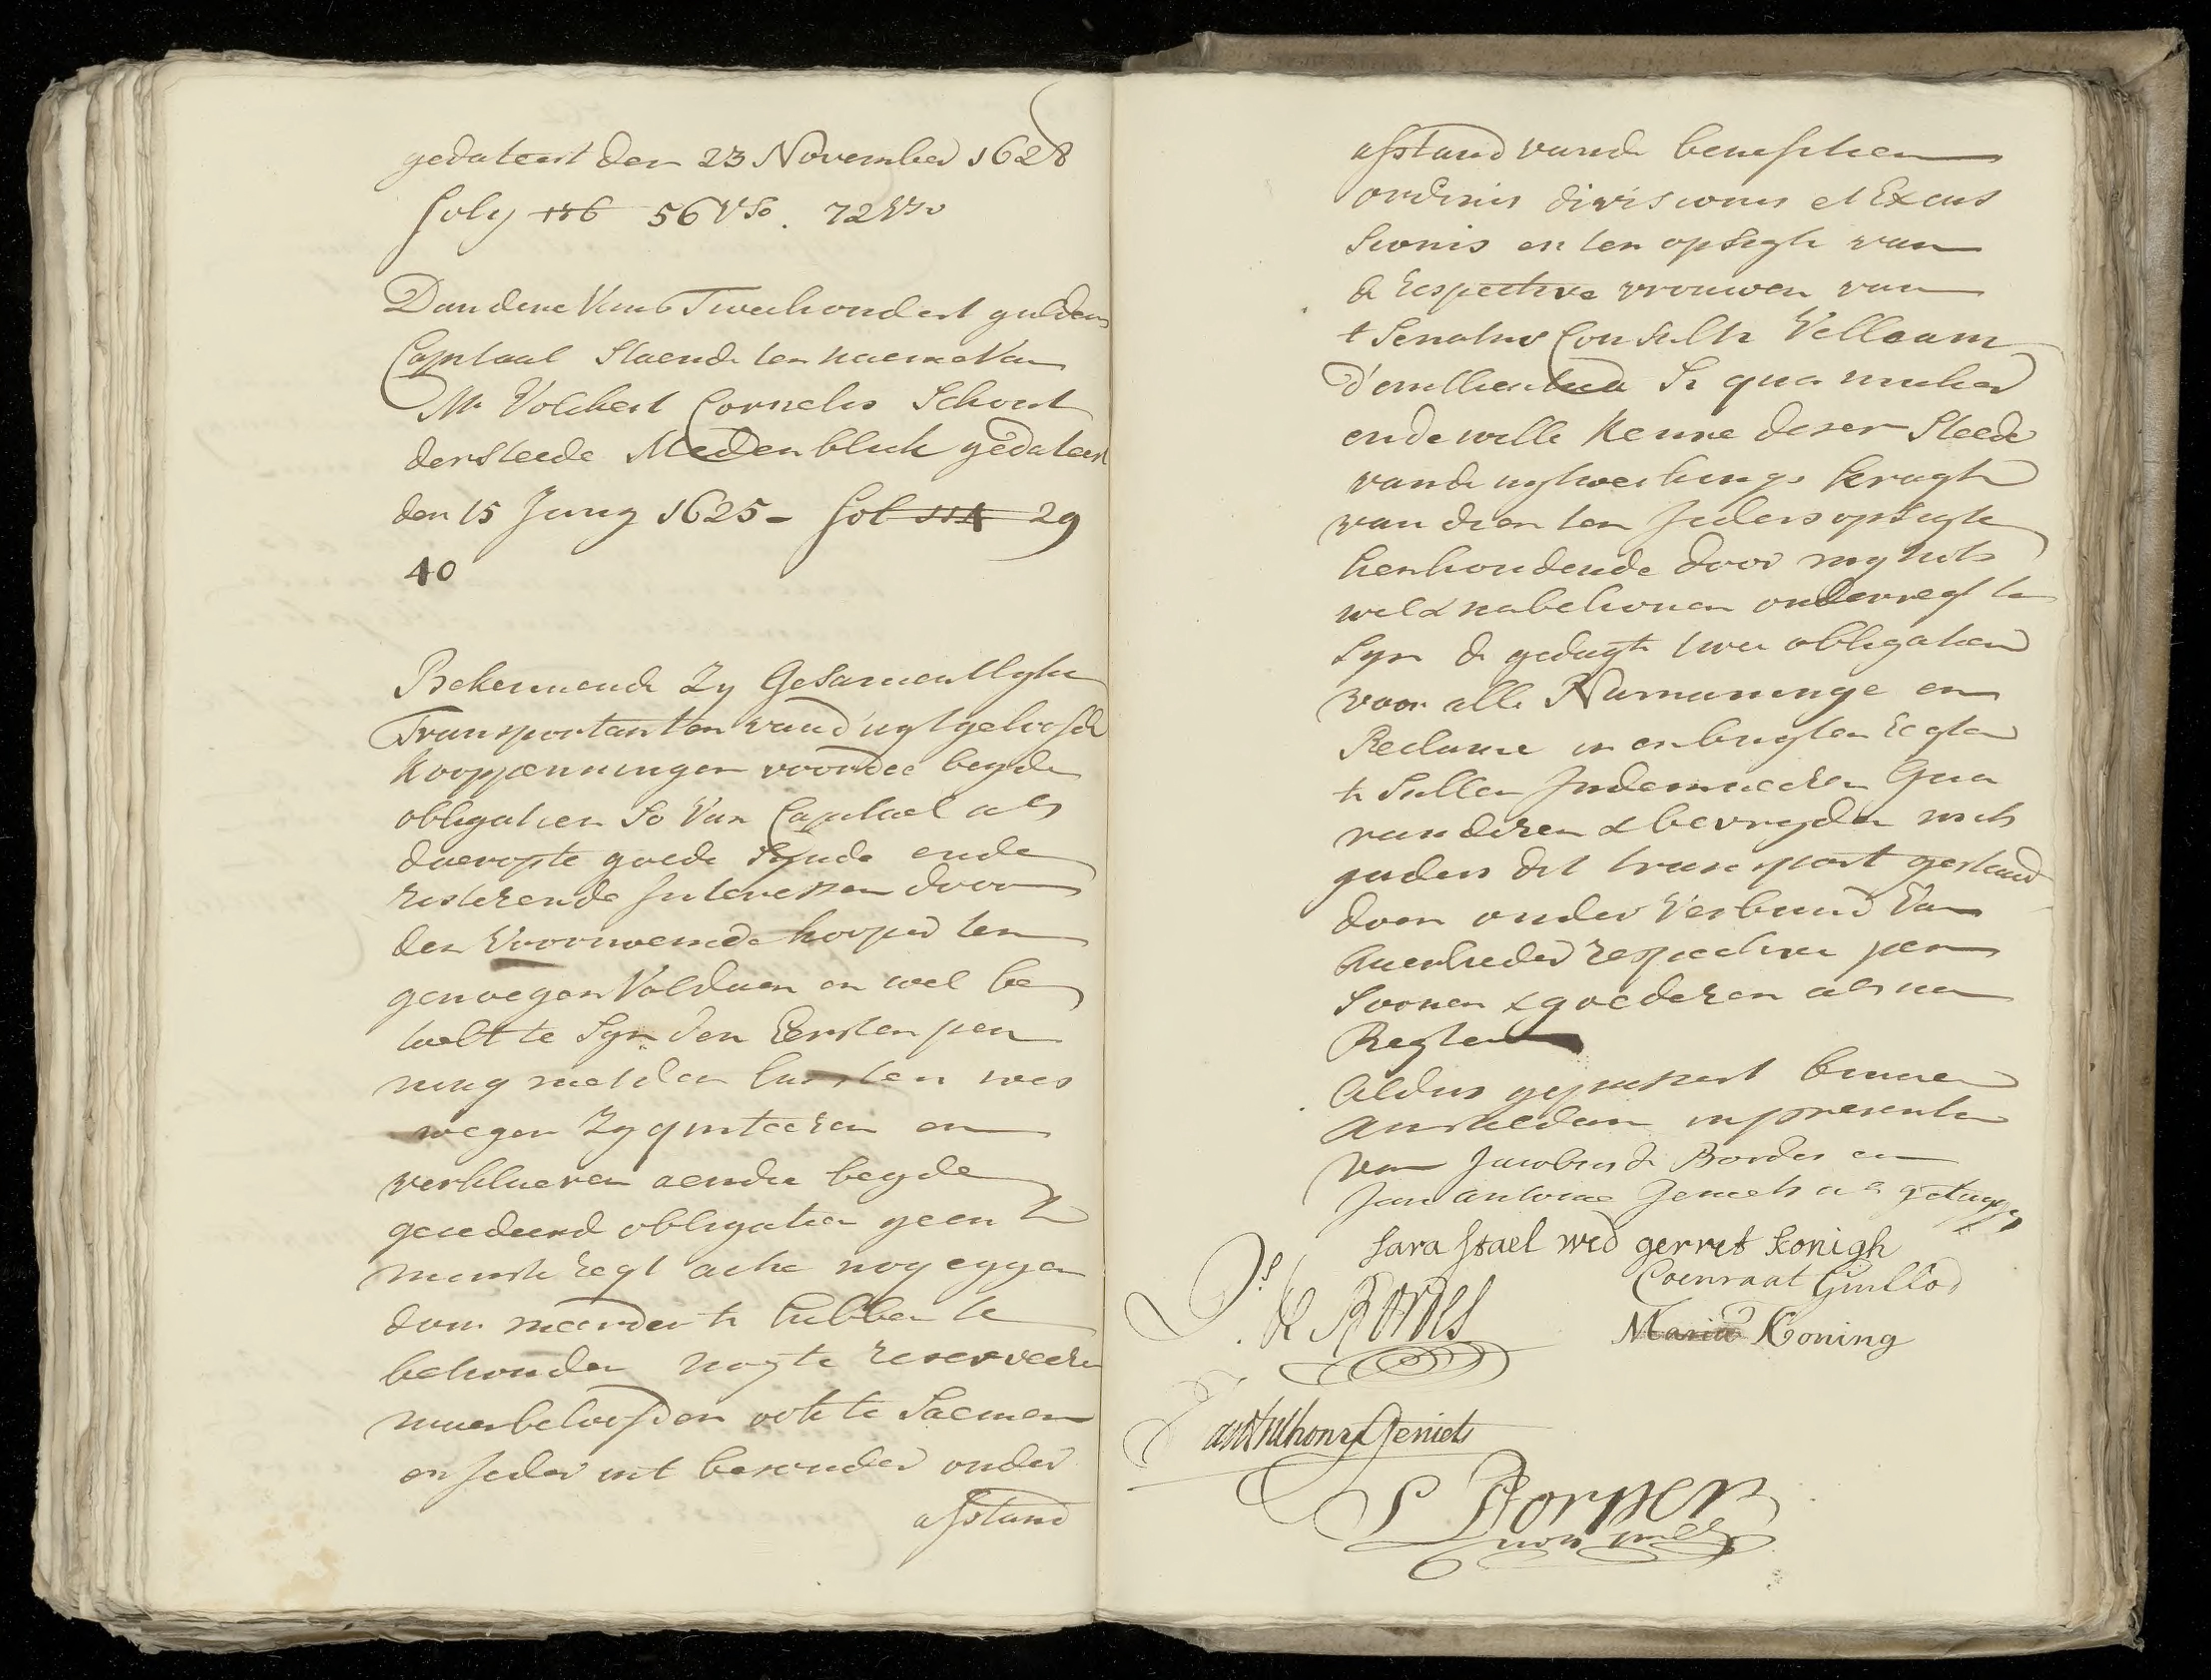 gedateert den 23 November 1628
foly 156 56 vso. 72 vso
Dandere van Tweehondert guldens
Capitaal Staende ten naeme van
Mr Volckert Cornelis Schout
der Steede Medenblick gedateert
den 15 Juny 1625 - fol 29
40
Bekennende Zy Gesamentlyke
Transportanten vand' uytgeloofde
Kooppenningen voor dee beyde
obligatien So van Capitael als
daerop te goede Synde ende
resterende Interessen door
den Voornoemde kooper ten
genoegen Voldaen en wel be
taelt te Syn den Eersten pen
ning met den lasten wes
wegen Zy quiteeren en
verklaeren aen die beyde
gecedeerd obligatien geen 't
minste regt actie nog eygen
dom meerder te hebben te
behouden nog te reserveeren
maer belooffden ook te Saemen
en Jeder int besonder onder
afstand
afstand vande beneficien
ordinis divisionis et Excus
Sionis en ten opsigte van
de respective vrouwen van
t Senatus Consulti Velleani
d'authentica Si qua mulier
ende wille keure deser Steede
vande uytwerkings kragte
van dien ten Jeders opsigte
henhoudende door my Nots
wel & na behoren onderregt te
Syn de gedagte twee obligatien
voor alle Namaninge en
Reclame in en buyten regten
te Sullen Indemneeren Gua
randeren & bevryden mits
gaders dit transport gestand
doen onder Verband van
haerlieder respective per
Soonen & goederen als na
Regten
Aldus gepasseert binnen
Amsteldam in presentie
van Jacobus de Bordes en
Jan Antonie Geniets als getuygen
Sara Stael wed gerret Konigh
Coenraat Guillod
Maria Koning
Js. de Bordes
Jan Anthony Geniets
S Dorper
not. pub.